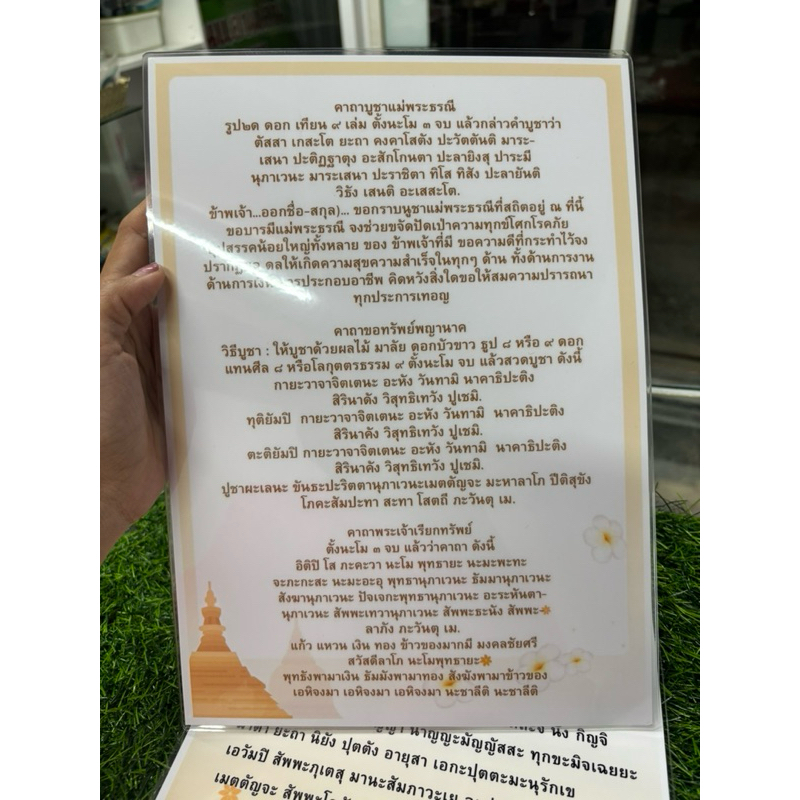 คาถาบูชาแม่พระธรณี
รูป๒ด ดอก เทียน ๙ เล่ม ตั้งนะโม ๓ จบ แล้วกล่าวคำบูชาว่า
ตัสสา เกสะโต ยะถา คงคาโสตัง ปะวัตตันติ มาระ-
เสนา ปะติฏฐาตุง อะสักโกนตา ปะลายิงสุ ปาระมี
นุภาเวนะ มาระเสนา ปะราชิตา ทิโส ทิสัง ปะลายันติ
วิธัง เสนติ อะเสสะโต.
ข้าพเจ้า...ออกชื่อ-สกุล)... ขอกราบนูชาแม่พระธรณีที่สถิตอยู่ ณ ที่นี้
ขอบารมีแม่พระธรณี จงช่วยขจัดปัดเป่าความทุกข์โศกโรคภัย
ปสรรคน้อยใหญ่ทั้งหลาย ของ ข้าพเจ้าที่มี ขอความดีที่กระทำไว้จง
ดลให้เกิดความสุขความสำเร็จในทุกๆ ด้าน ทั้งด้านการงาน
ด้านการเงิน การประกอบอาชีพ คิดหวังสิ่งใดขอให้สมความปรารถนา
ทุกประการเทอญ
คาถาขอทรัพย์พญานาค
วิธีบูชา : ให้บูชาด้วยผลไม้ มาลัย ดอกบัวขาว ธูป ๘ หรือ ๙ ดอก
แทนศีล ๘ หรือโลกุตตรธรรม ๙ ตั้งนะโม จบ แล้วสวดบูชา ดังนี้
กายะวาจาจิตเตนะ อะหัง วันทามิ นาคาธิปะติง
สิรินาดัง วิสุทธิเทวัง ปูเชมิ.
ทุติยัมปิ กายะวาจาจิตเตนะ อะหัง วันทามิ นาคาธิปะติง
สิรินาคัง วิสุทธิเทวัง ปูเชมิ.
ตะติยัมปิ กายะวาจาจิตเตนะ อะหัง วันทามิ นาคาธิปะติง
สิรินาคัง วิสุทธิเทวัง ปูเชมิ.
ปูชาผะเลนะ ขันธะปะริตตานุภาเวนะเมตตัญจะ มะหาลาโภ ปีติสุขัง
โภคะสัมปะทา สะทา โสตถี ภะวันตุ เม.
คาถาพระเจ้าเรียกทรัพย์
ตั้งนะโม ๓ จบ แล้วว่าคาถา ดังนี้
อิติปิ โส ภะคะวา นะโม พุทธายะ นะมะพะทะ
จะภะกะสะ นะมะอะอุ พุทธานุภาเวนะ ธัมมานุภาเวนะ
สังฆานุภาเวนะ ปัจเจกะพุทธานุภาเวนะ อะระหันตา-
นุภาเวนะ สัพพะเทวานุภาเวนะ สัพพะธะนัง สัพพะ
ลาภัง ภะวันตุ เม.
แก้ว แหวน เงิน ทอง ข้าวของมากมี มงคลชัยศรี
สวัสดีลาโภ นะโมพุทธายะ
พุทธังพามาเงิน ธัมมังพามาทอง สังฆังพามาข้าวของ
เอหิจงมา เอหิจงมา เอหิจงมา นะชาลีติ นะชาลีติ
นาญญะมัญญัสสะ ทุกขะมิจเฉยยะ
ยะถา นิยัง ปุตตัง อายุสา เอกะปุตตะมะนุรักเข
เอวัมปิ สัพพะภูเตสุ มานะสัมภาวะเย
เมตตัญจะ